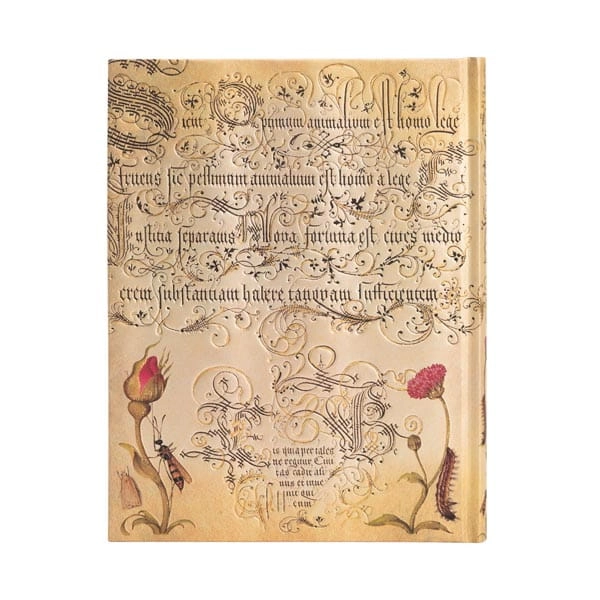 Sicut Optimum animalium est homo lege
fruens sic pessimum animalium est homo a lege
Iustitia separatus Bona fortuna est cives medio
crem substantiam habere tanquam sufficientem
is quia per tales
ne regnur Civi
tas cadit ali
nus et inve
nit qui
cum